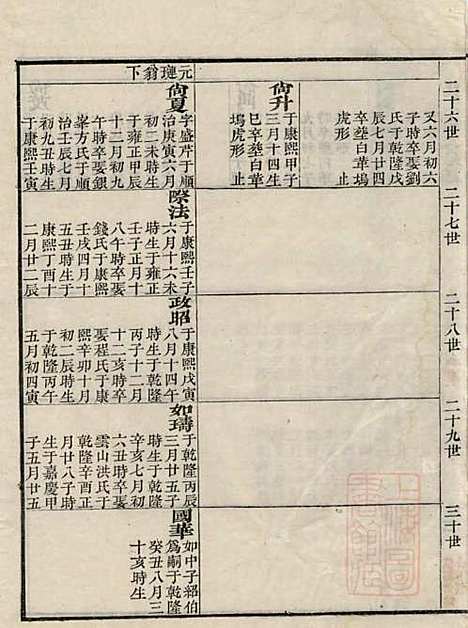 二十六世
二十七世
二十八世
二十九世
三十世
又六月初六
子時卒娶劉
氏于乾隆戊
辰七月廿四
卒塟白華塢
虎形 止
尙升
于康熙甲子
三月十四生
巳辛塟白華
塢虎形 止
元璉翁下
尙夏
字盛芹于順
治庚寅六月
初二未時生
于雍正甲辰
十二月初九
午時卒娶銀
峯方氏于順
治壬辰七月
初九丑時生
于康熙壬寅
際法
于康熙壬子
六月十六未
時生于雍正
壬子正月十
八午時卒娶
錢氏于康熙
壬戌四月十
五丑時生于
康熙丁酉十
二月廿二辰
政昭
于康熙戊寅
八月十四午
時生于乾隆
丙子十二月
十二亥時卒
娶程氏于康
熙辛卯十月
初二辰時生
于乾隆丙午
五月初四寅
如璹
于乾隆丙辰
三月廿五子
時生于乾隆
辛亥七月初
六丑時卒娶
雲山洪氏于
乾隆辛酉正
月廿八子時
生于嘉慶甲
子五月廿五
國華
如中子紹伯
爲嗣于乾隆
癸丑八月三
十亥時生